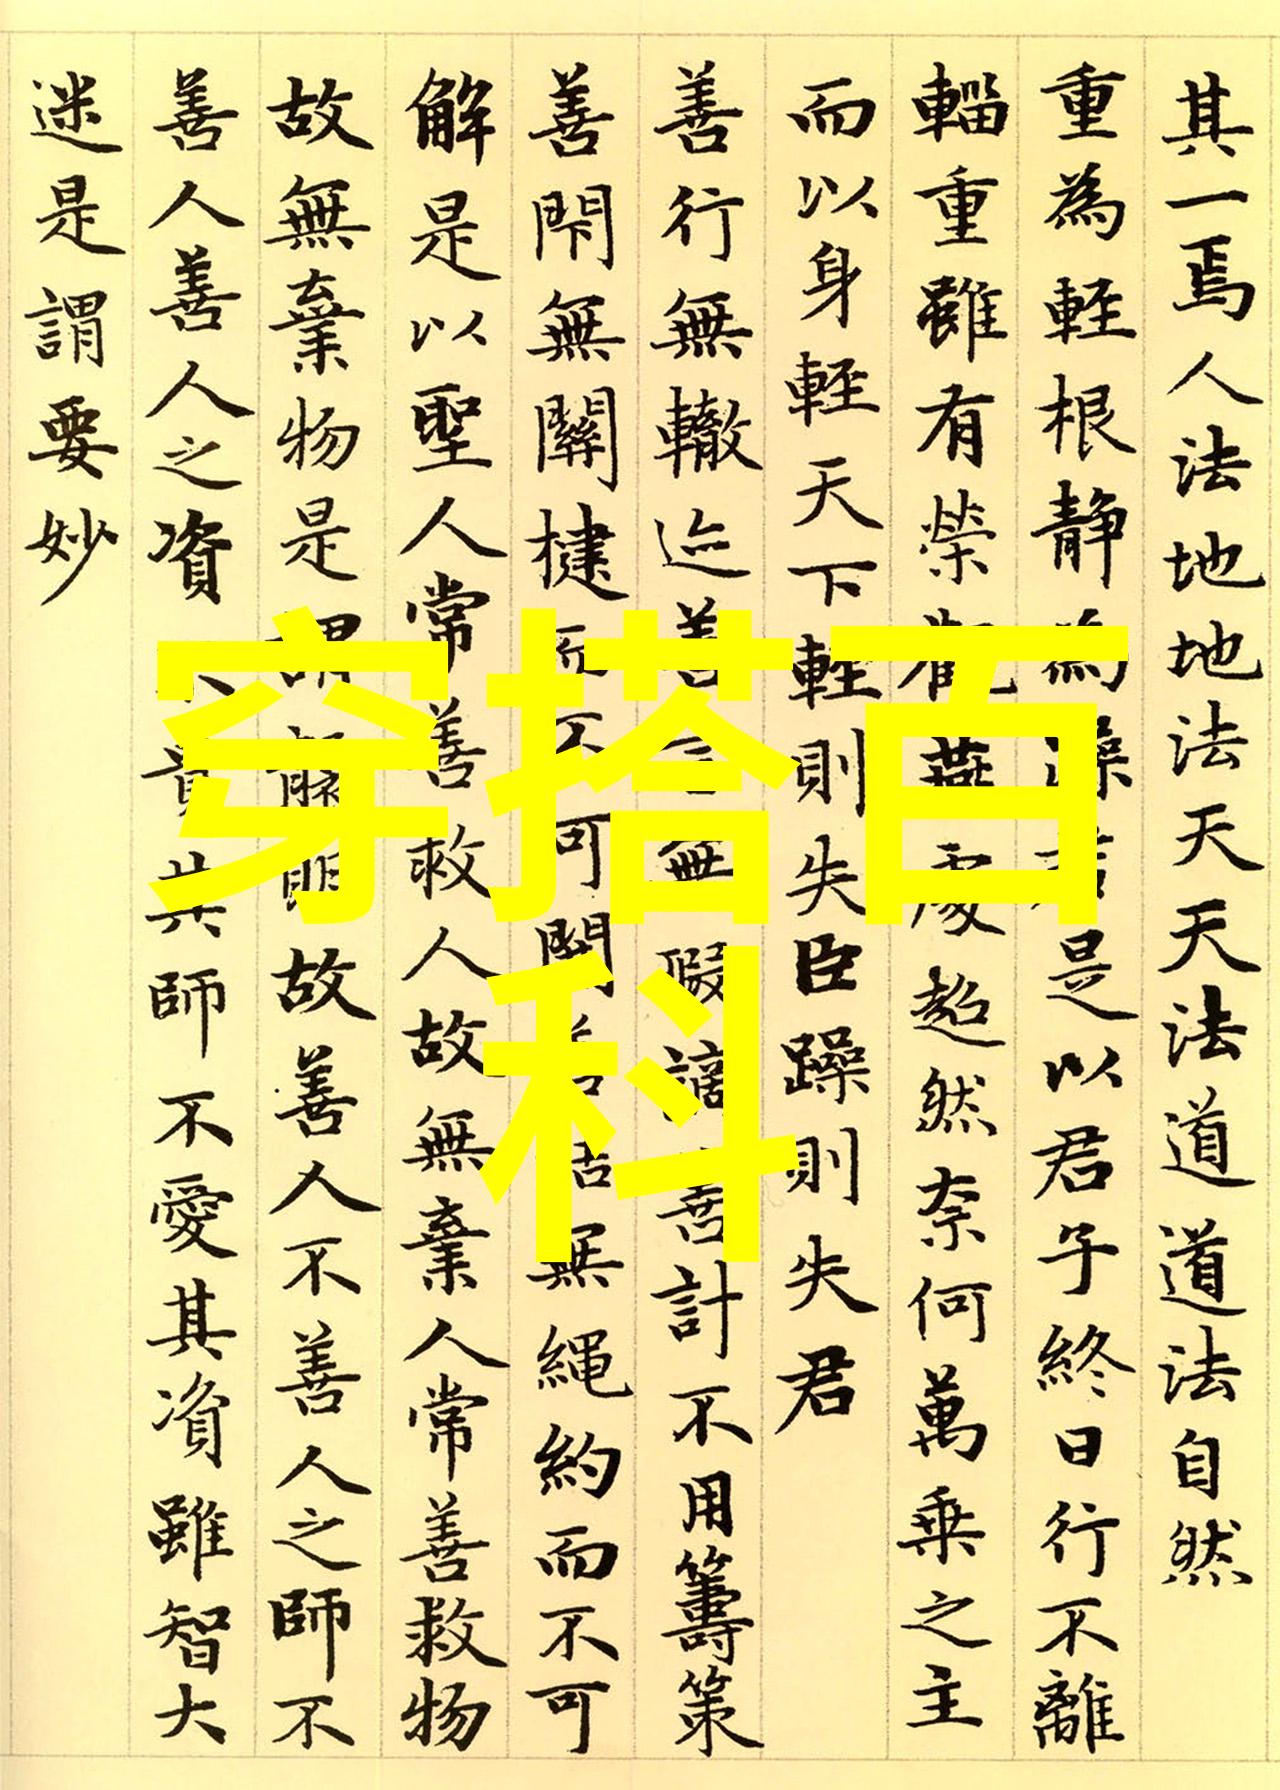 其一焉人法地地法天天法道道法自然
重為輕根靜為躁君是以君子終日行不離
輜重雖有榮觀燕處超然奈何萬乗之主
而以身輕天下輕則失臣躁則失君
善行無轍迹善言無瑕讁善計不用籌策
善閇無關楗而不可開善結無繩約而不可
解是以聖人常善救人故無棄人常善救物
故無棄物是謂襲明故善人不善人之師不
善人善人之資不貴其師不愛其資雖智大
迷是謂要妙
穿搭百
科